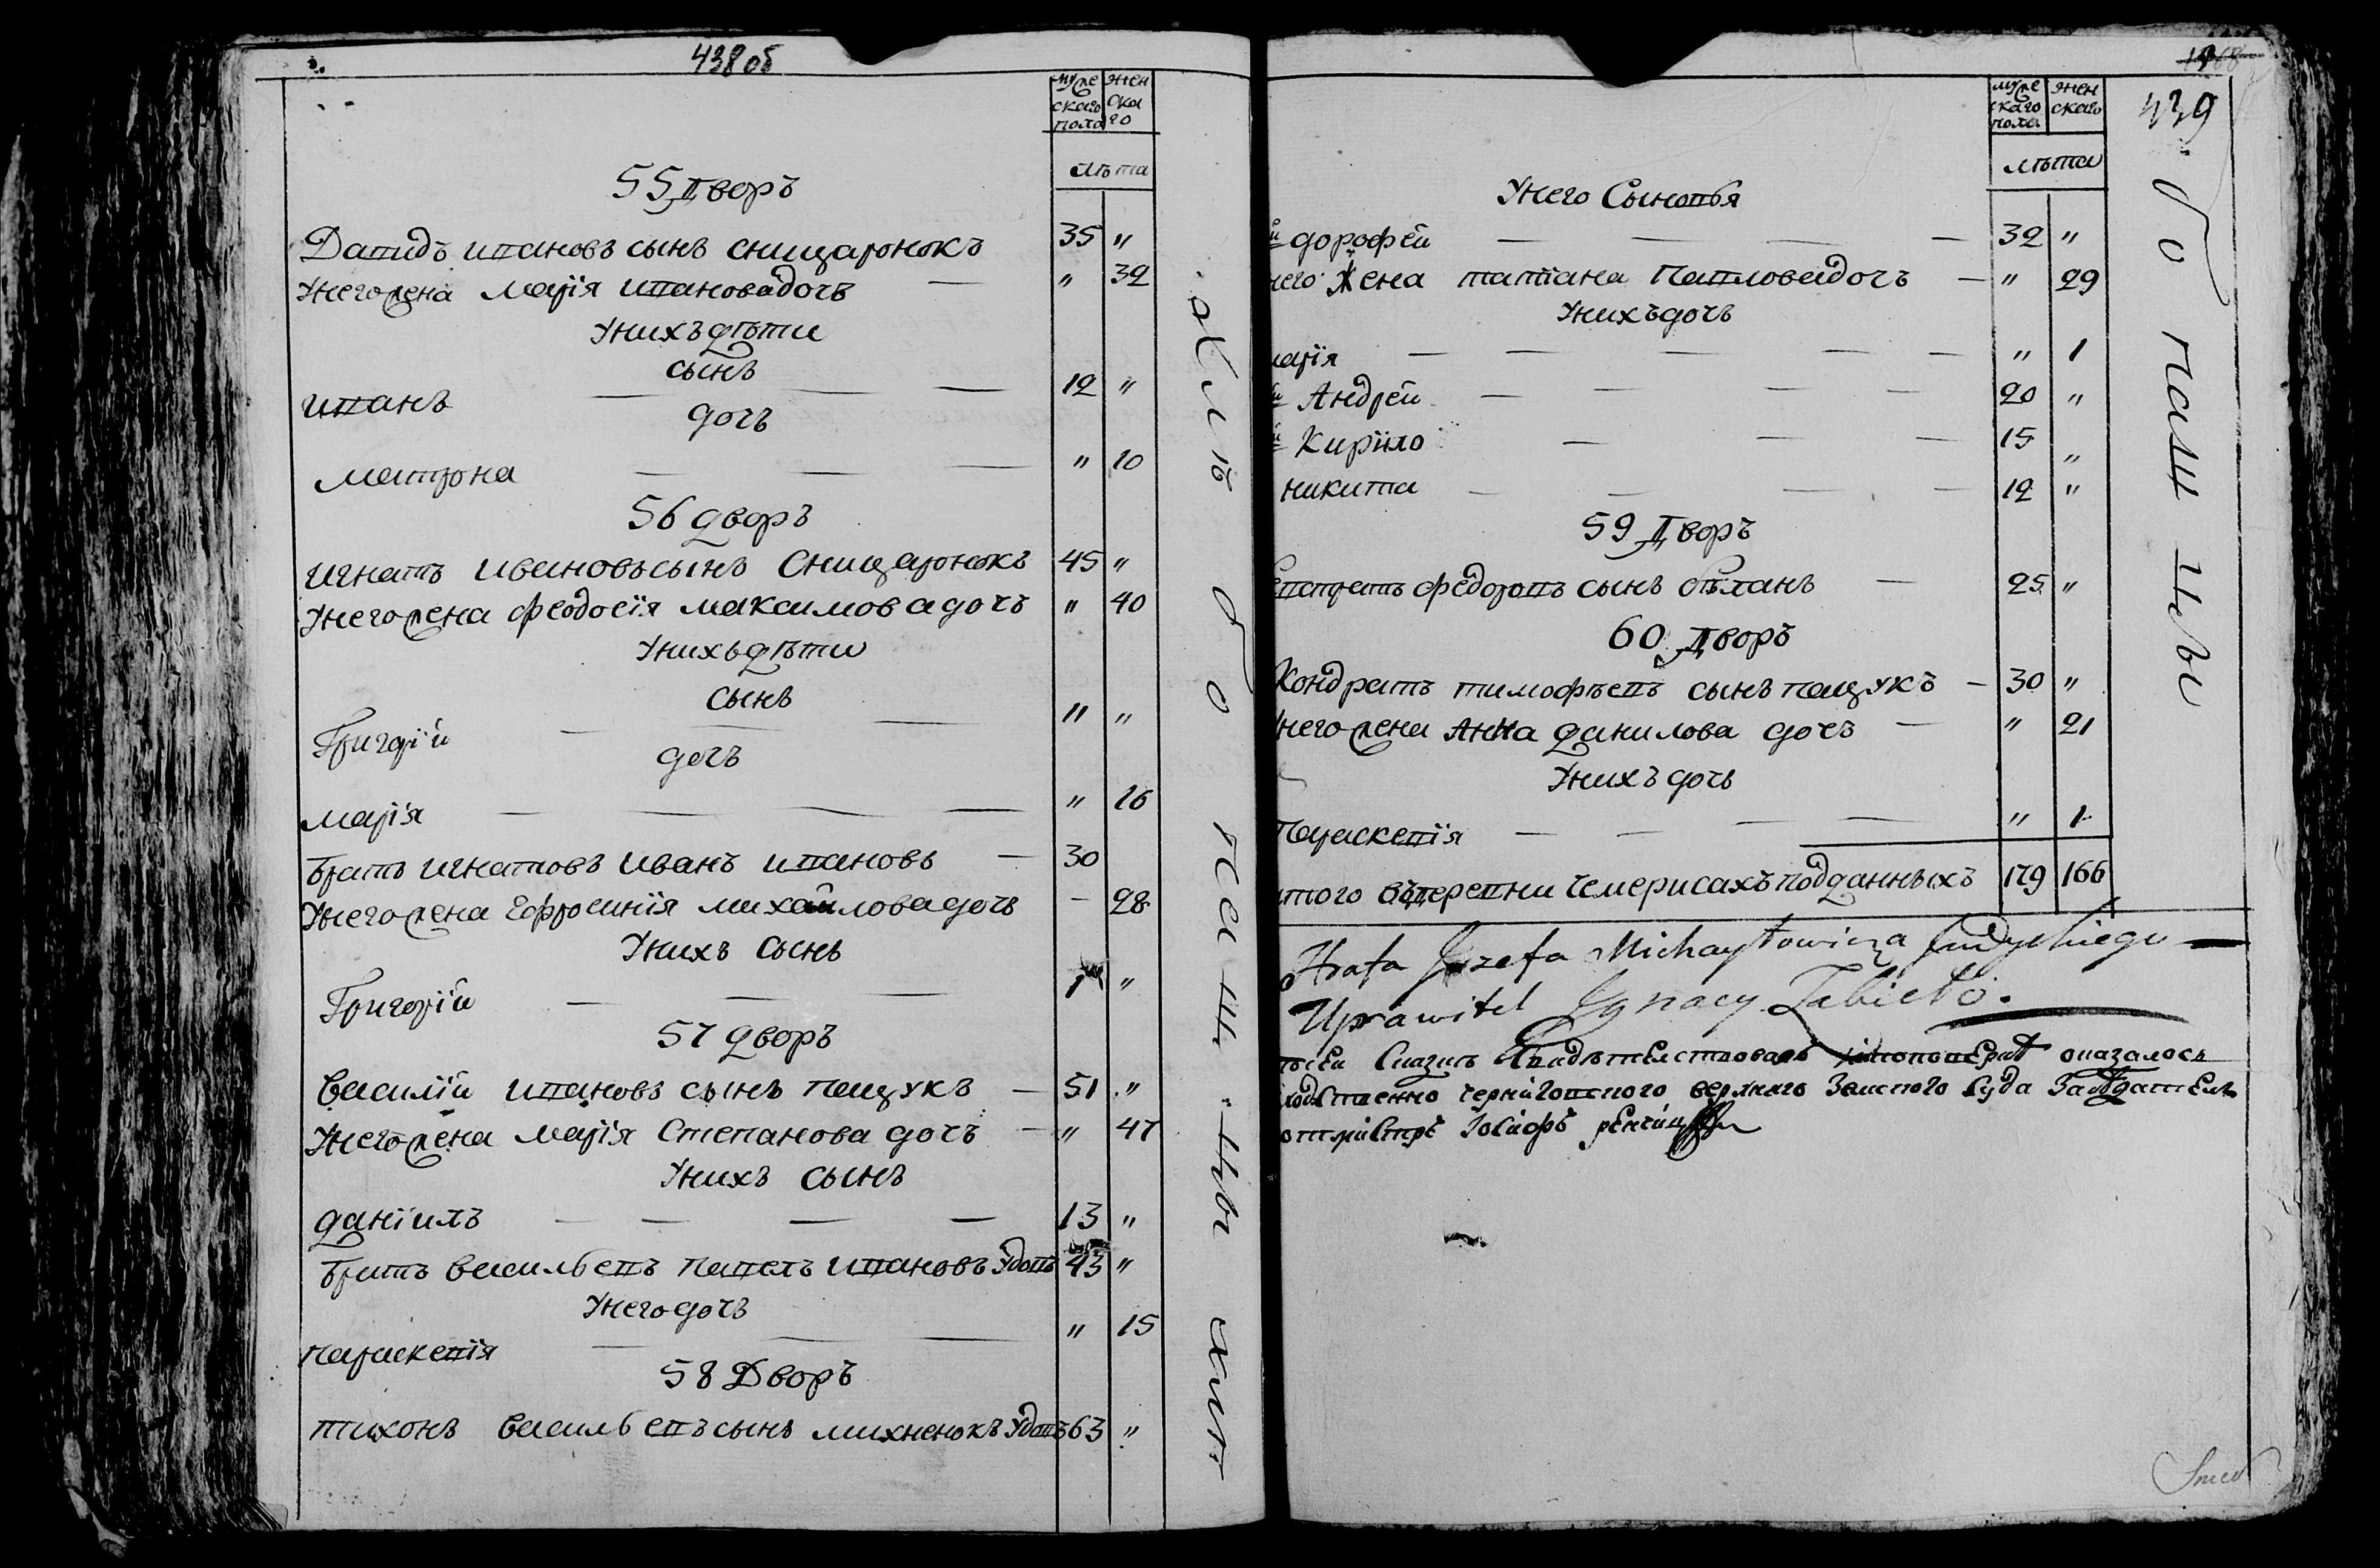 438 об
муже ского пола
жен ска го
лѣта
55 Дворъ
Давидъ ивановъ сынъ снищаронокъ 35 "
Унего жена марїя ивановадочь — " 32
Унихъ дѣти
сынъ
иванъ — — — 12 "
дочь
матрона — — — " 10
56 дворъ
игнатъ ивановъ сынъ Снищаронокъ 45 "
Унего жена феодосїя максимова дочь " 40
Унихъ дѣти
сынъ
Григорїй — — — 11 "
дочь
марїя — — — — " 16
братъ игнатовъ иванъ ивановъ — 30
Унего жена Ефросинїя михайлова дочь - 28
Унихъ сынъ
Григорїй — — — 1 "
57 дворъ
василїй ивановъ сынъ пащукъ — 51 "
Унего жена марїя Степанова дочь — " 47
Унихъ сынъ
данїилъ — — — — 13 "
братъ васильевъ павелъ ивановъ Удовъ 43 "
Унего дочь
параскевїя — — — " 15
58 Дворъ
тихонъ васильевъ сынъ михненокъ Удовъ 63 "
439
муже ского пола
жен ского
лѣта
Унего Сыновья
й дорофей — — — — 32 "
него Жена татїана павловадочь — " 29
Унихъ дочь
марїя — — — — — " 1
й Андрей — — — — 20 "
й Кирило — — — 15 "
никита — — — — 12 "
59 Дворъ
Евстратъ федоровъ сынъ бѣланъ — 25 "
60 Дворъ
Кондратъ тимофѣевъ сынъ пащукъ — 30 "
Унего жена Анна данилова дочь — " 21
Унихъ дочь
Параскевїя — — — — " 1
итого въдеревни чемерисахъ подданныхъ 179 166
Hrafa Jozefa Michayłowicza Judyckiego —
Uprawitel Ignacy Zabiełło.
сказки Свидѣтелствовалъ оказалось
черниговского верхнаго Земского Суда Засѣдатель
Іосифъ